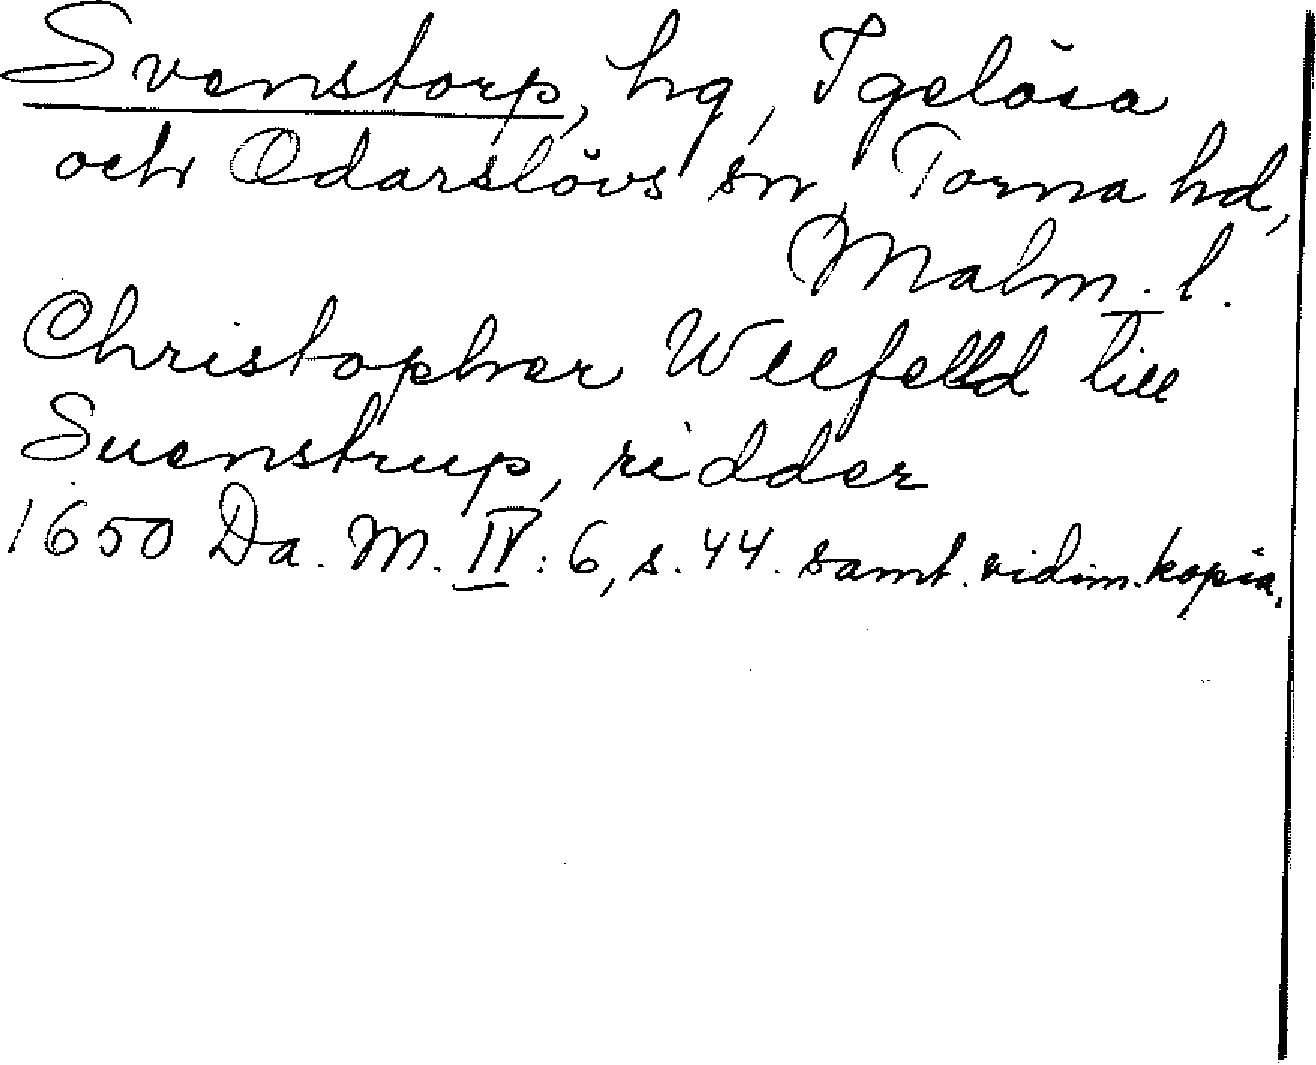 Svenstorp, hg, Igelösa
och Odarslövs sn, Torna hd,
Malm. l.
Christopher Wlefelld till
Suenstrup, ridder
1650 Da. M. IV: 6, s. 44. samt. vidim. kopia.